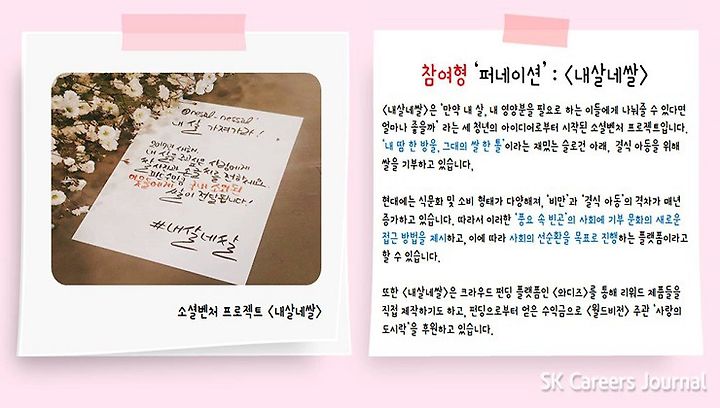 @nesal_nessal
내 살 가져가라!
#내살네쌀
소셜벤처 프로젝트 <내살네쌀>
참여형 ‘퍼네이션’ : <내살네쌀>
<내살네쌀>은 ‘만약 내 살, 내 영양분을 필요로 하는 이들에게 나눠줄 수 있다면
얼마나 좋을까’ 라는 세 청년의 아이디어로부터 시작된 소셜벤처 프로젝트입니다.
‘내 땀 한 방울, 그대의 쌀 한 톨’이라는 재밌는 슬로건 아래, 결식 아동을 위해
쌀을 기부하고 있습니다.
현대에는 식문화 및 소비 형태가 다양해져, ‘비만’과 ‘결식 아동’의 격차가 매년
증가하고 있습니다. 따라서 이러한 ‘풍요 속 빈곤’의 사회에 기부 문화의 새로운
접근 방법을 제시하고, 이에 따라 사회의 선순환을 목표로 진행하는 플랫폼이라고
할 수 있습니다.
또한 <내살네쌀>은 크라우드 펀딩 플랫폼인 <와디즈>를 통해 리워드 제품들을
직접 제작하기도 하고, 펀딩으로부터 얻은 수익금으로 <월드비전> 주관 ‘사랑의
도시락’을 후원하고 있습니다.
SK Careers Journal